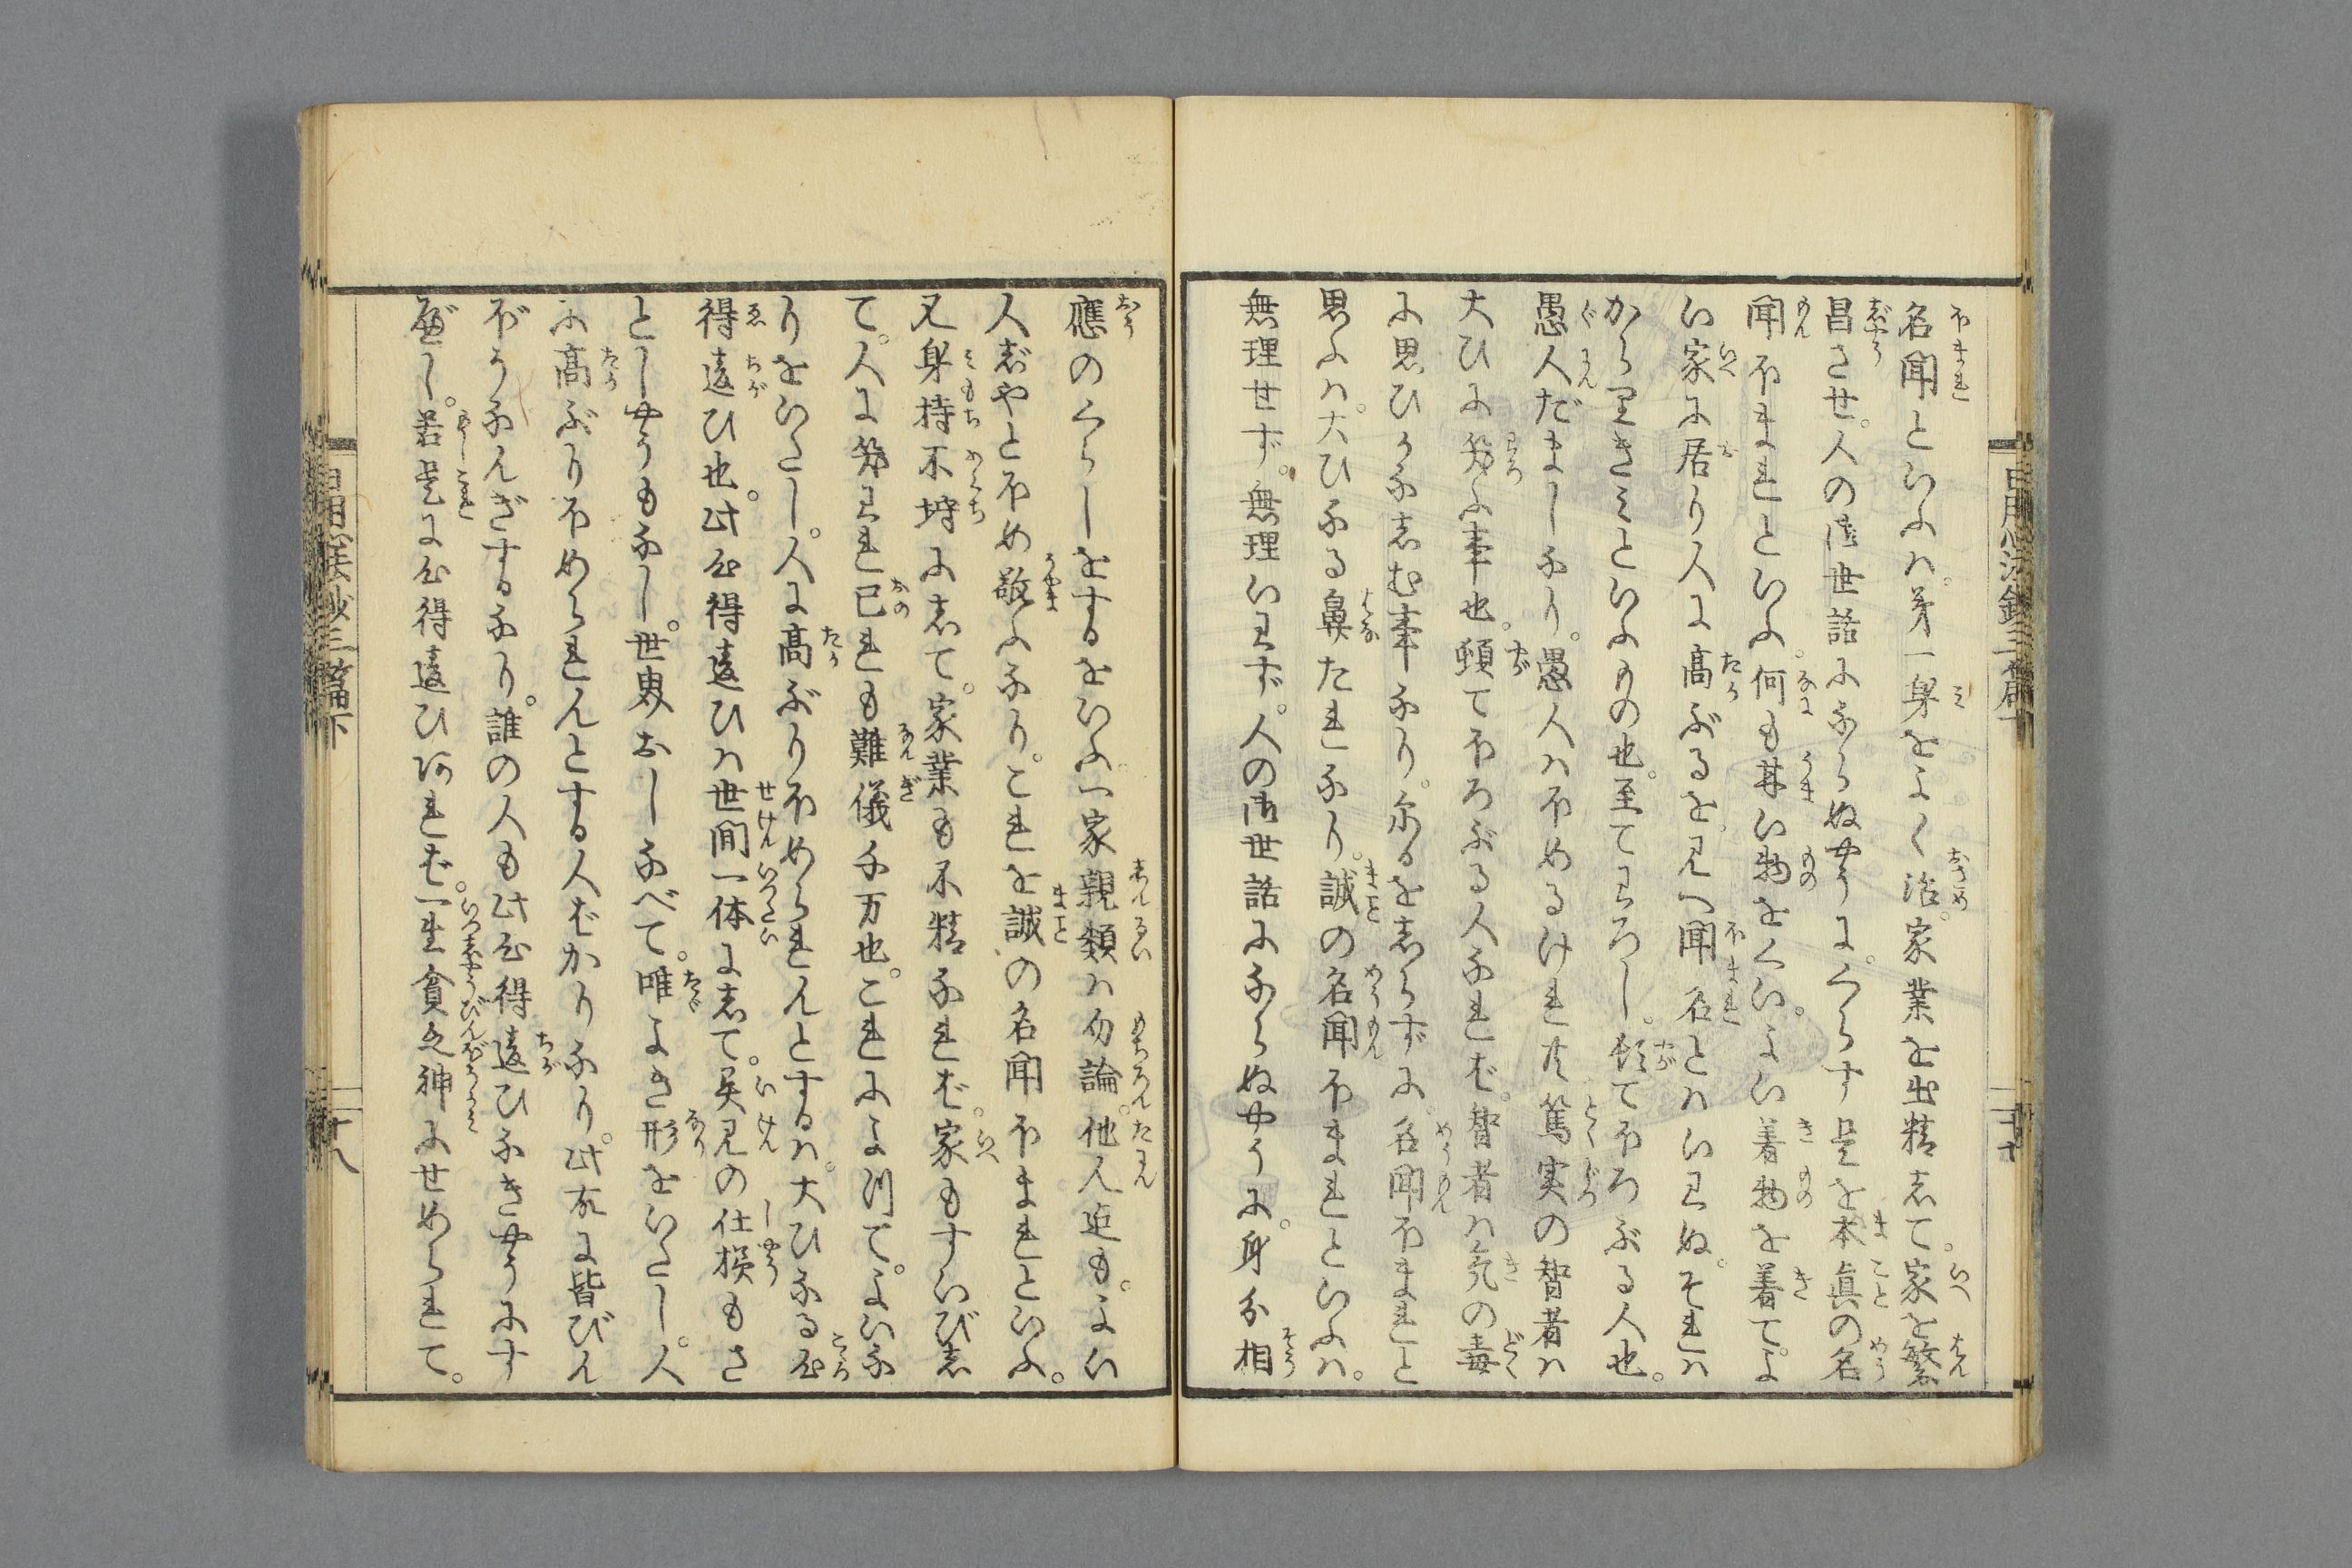 名聞といふハ。第一身をよく治。家業を出精志て。家を繁
昌させ。人の御世話にならぬやうに。くらす是を本真の名
聞ほまれといふ。何も甘い物をくい。よい着物を着てよ
い家に居り人に高ぶるを見へ聞名とハいわぬ。それハ
からゐきミといふもの也。至てわろし。頓てほろぶる人也。
愚人だましなり。愚人ハほめるけれ共篤実の智者ハ
大ひに笑ふ事也。頓てほろぶる人なれば。智者ハ気の毒
に思ひかなしむ事なり。尓るを志らずに。名聞ほまれと
思ふハ。大ひなる鼻たれなり。誠の名聞ほまれといふハ。
無理せず。無理いわず。人の御世話にならぬやうに。身分相
應のくらしをするをいふ一家親類ハ勿論。他人迄も。よい
人じやとほめ敬ふなり。これを誠の名聞ほまれといふ。
又身持不埒に志て。家業も不精なれば。家もすいび志
て。人に笑われ己れも難儀千万也。これによつて。よいふ
りをいたし。人に高ぶりほめられんとするハ。大ひなる心
得違ひ也。此心得違ひハ世間一体に志て。異見の仕損もさ
としやうもなし。世界おしなべて。唯よき形をいたし。人
に高ぶりほめられんとする人ばかりなり。此故に皆びん
ぼうなんぎするなり。誰の人も此心得違ひなきやうにす
べし。若是に心得違ひあれば。一生貧乏神にせめられて。
日用心法鈔三篇下
十八